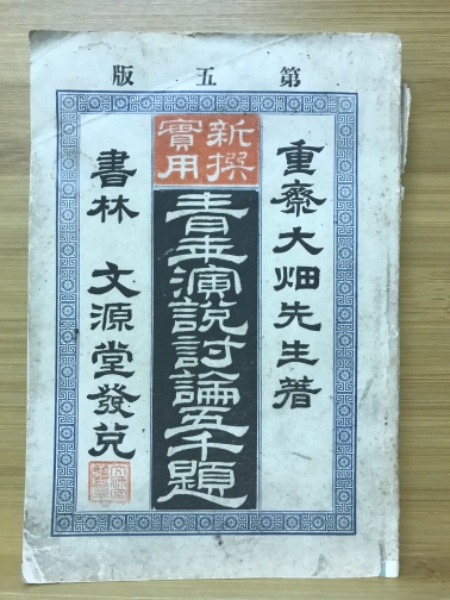 第五版
重齋大畑先生著
新撰
實用
青年演説討論五千題
書林 文源堂發兌